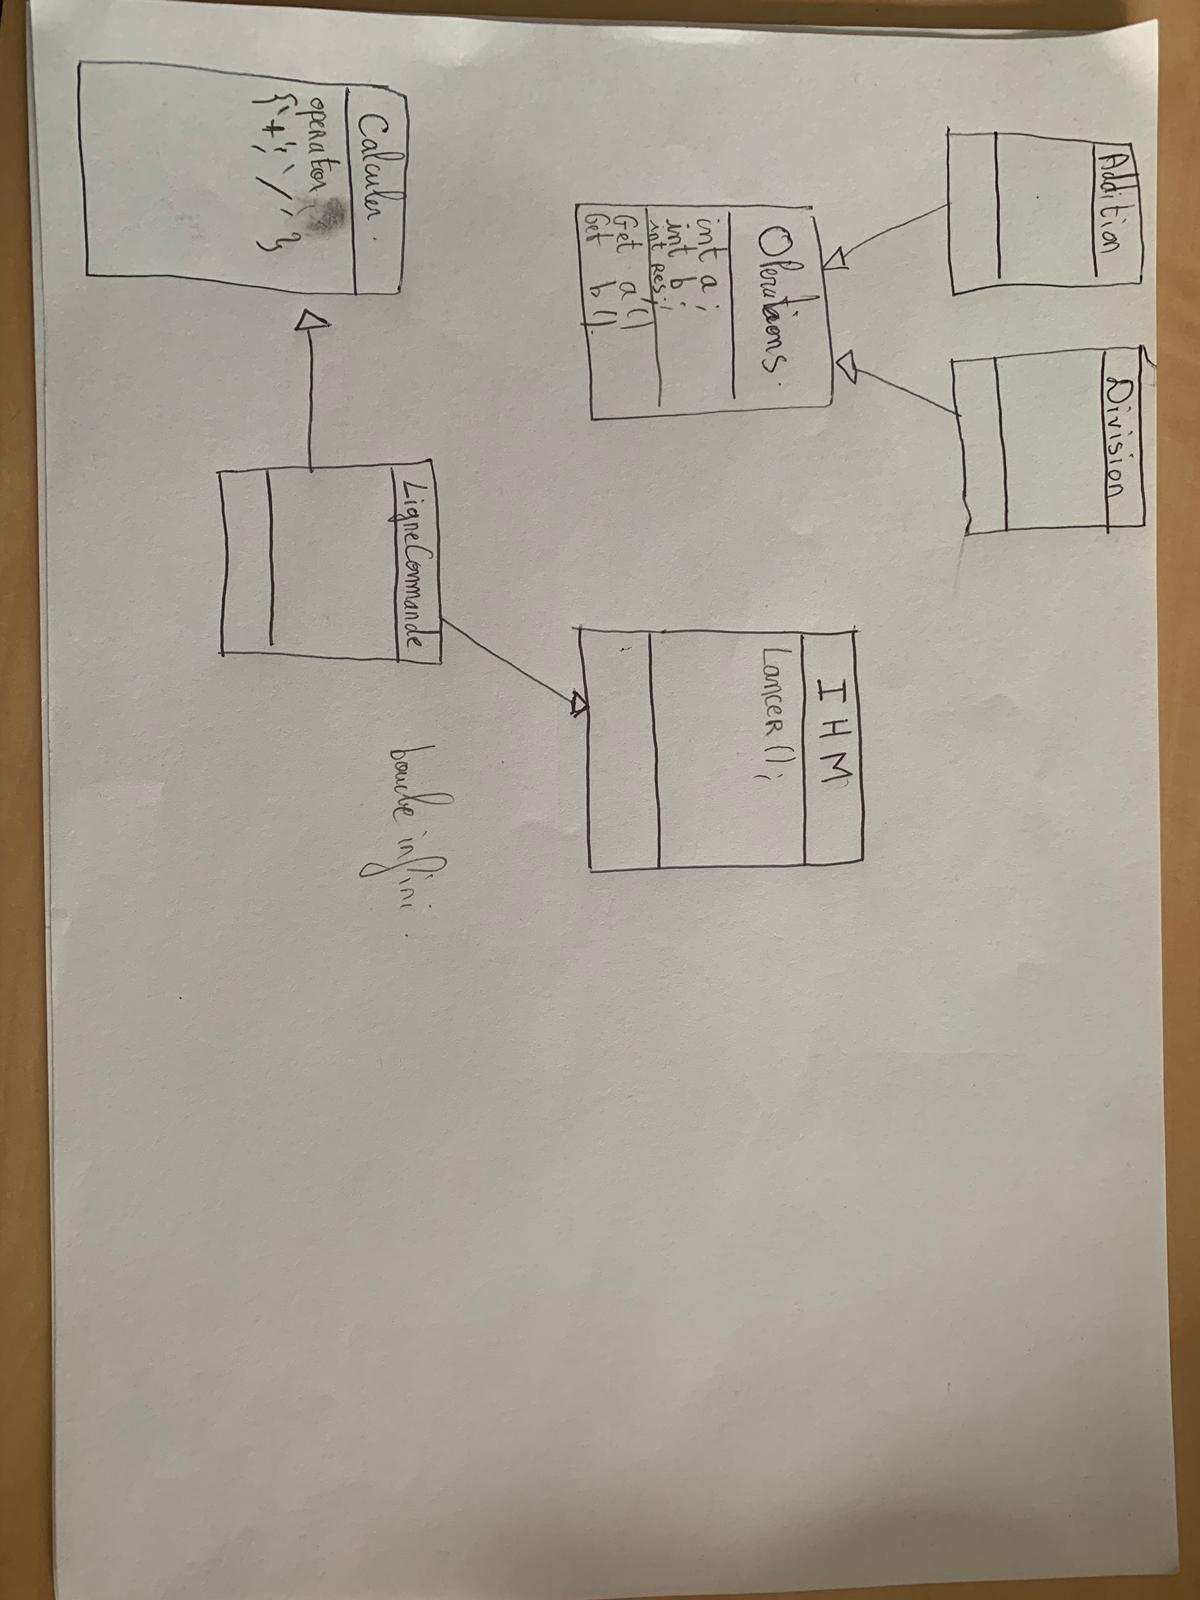 Addition
Division
Operations
int a ;
int b ;
int Res ;
Get a ()
Get b ().
IHM
Lancer () ;
LigneCommande
boucle infini .
Calculer .
operator
{'+'; '/' }